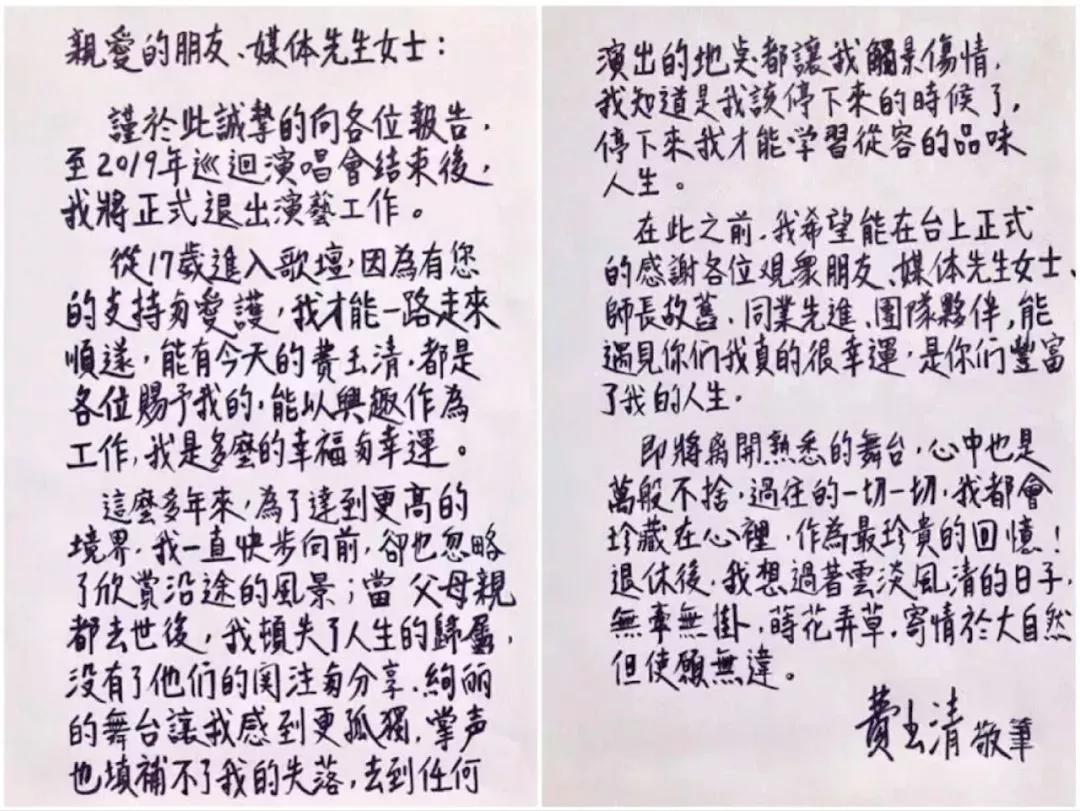 親愛的朋友、媒体先生女士：
謹於此誠摯的向各位報告，
至2019年巡迴演唱會结束後，
我將正式退出演藝工作。
從17歲進入歌壇，因為有您
的支持与愛護，我才能一路走來
順遂，能有今天的費玉清，都是
各位賜予我的，能以興趣作為
工作，我是多麼的幸福与幸運。
這麼多年來，為了達到更高的
境界，我一直快步向前，卻也忽略
了欣賞沿途的風景；當父母親
都去世後，我頓失了人生的歸屬，
没有了他們的関注与分享，絢丽
的舞台讓我感到更孤獨，掌声
也填補不了我的失落，去到任何
演出的地点都讓我觸景傷情，
我知道是我該停下來的時候了，
停下來我才能学習從容的品味
人生。
在此之前，我希望能在台上正式
的感謝各位观衆朋友、媒体先生女士、
師長故舊、同業先進、團隊夥伴，能
遇見你們我真的很幸運，是你們豐富
了我的人生。
即將离開熟悉的舞台，心中也是
萬般不捨，過往的一切一切，我都會
珍藏在心裡，作為最珍貴的回憶！
退休後，我想過著雲淡風清的日子，
無牽無掛，蒔花弄草，寄情於大自然
但使願無違。
費玉清 敬筆